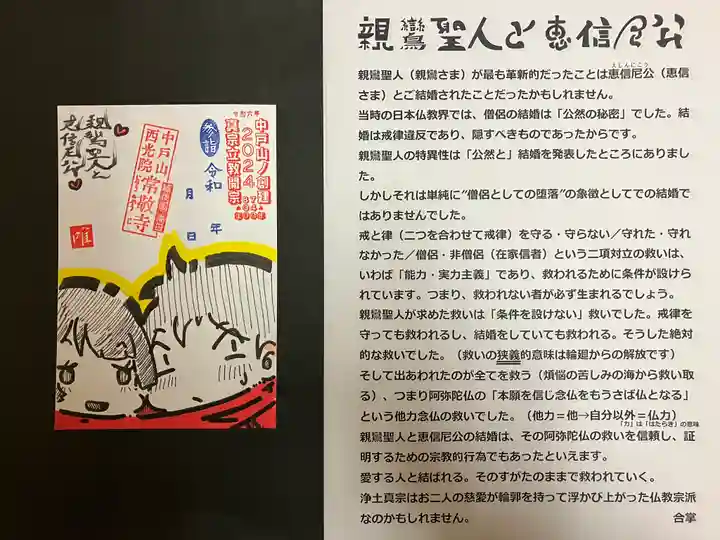 親鸞聖人と恵信尼公
親鸞聖人(親鸞さま)が最も革新的だったことは恵信尼公(恵信
えしんにこう
さま)とご結婚されたことだったかもしれません。
当時の日本仏教界では、僧侶の結婚は「公然の秘密」でした。結
婚は戒律違反であり、隠すべきものであったからです。
親鸞聖人の特異性は「公然と」結婚を発表したところにありまし
た。
しかしそれは単純に"僧侶としての堕落"の象徴としてでの結婚で
はありませんでした。
戒と律(二つを合わせて戒律)を守る・守らない/守れた・守れ
なかった/僧侶・非僧侶(在家信者)という二項対立の救いは、
いわば「能力・実力主義」であり、救われるために条件が設けら
れています。つまり、救われない者が必ず生まれるでしょう。
親鸞聖人が求めた救いは「条件を設けない」救いでした。戒律を
守っても救われるし、結婚をしていても救われる。そうした絶対
的な救いでした。(救いの狭義的意味は輪廻からの解放です)
そして出あわれたのが全てを救う(煩悩の苦しみの海から救い取
る)、つまり阿弥陀仏の「本願を信じ念仏をもうさば仏となる」
という他力念仏の救いでした。(他力=他→自分以外=仏力)
「力」は「はたらき」の意味
親鸞聖人と恵信尼公の結婚は、その阿弥陀仏の救いを信頼し、証
明するための宗教的行為でもあったといえます。
愛する人と結ばれる。そのすがたのままで救われていく。
浄土真宗はお二人の慈愛が輪郭を持って浮かび上がった仏教宗派
なのかもしれません。
合掌
親鸞聖人と
恵信尼公
令和六年
中戸山ノ創建
2024
真宗立教開宗
参詣
令和 年
月 日
中戸山
西光院
常敬寺
唯